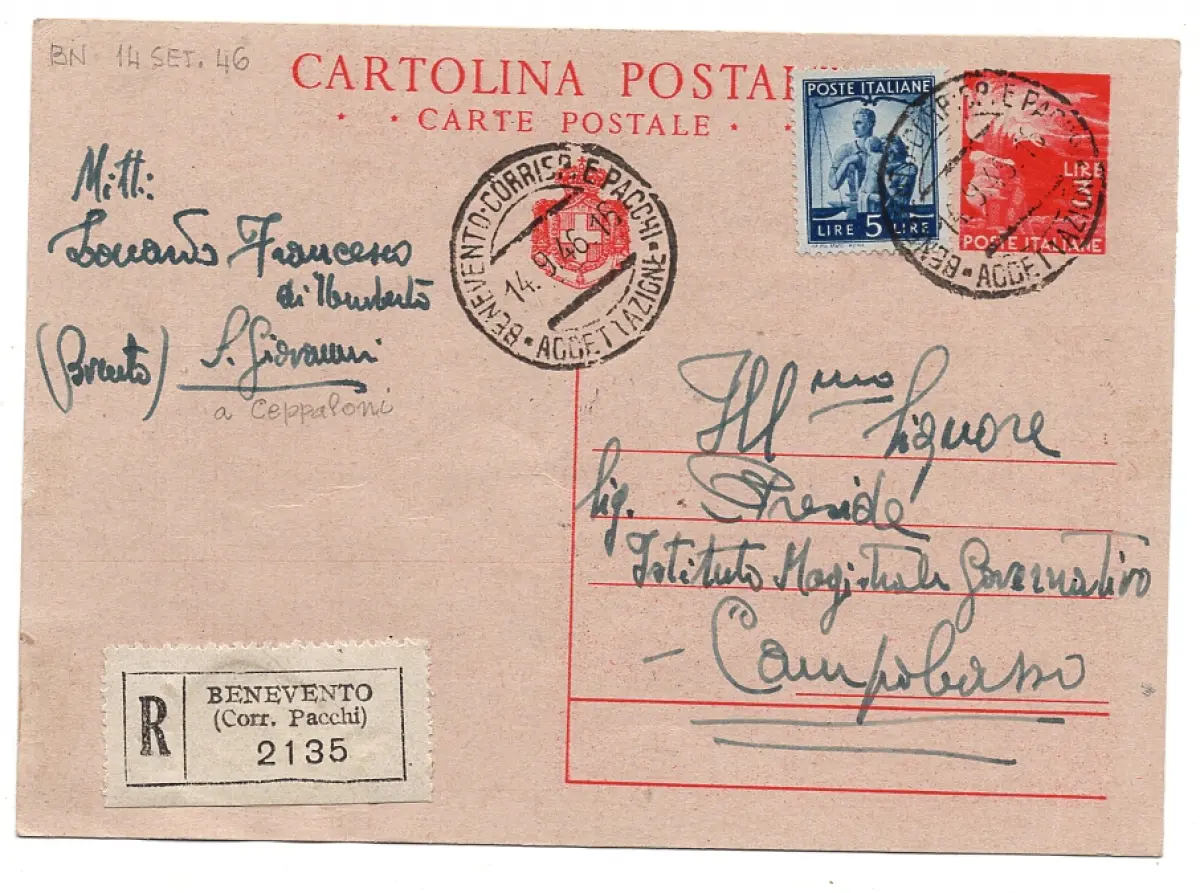 BN 14 SET. 46
CARTOLINA POSTAL
CARTE POSTALE
POSTE ITALIANE
LIRE 5 LIRE
LIRE
POSTE ITALIANE
BENEVENTO-CORRISP. E PACCHI
14.9.46.16
ACCETTAZIONE
CORRISP. E PACCHI
ACCETTAZIONE
Mitt:
Francesco
di Umberto
(Bvento) S. Giovanni
a Ceppaloni
Ill mo Signore
Sig. Preside
Istituto Magistrale Governativo
- Campobasso
R
BENEVENTO
(Corr. Pacchi)
2135